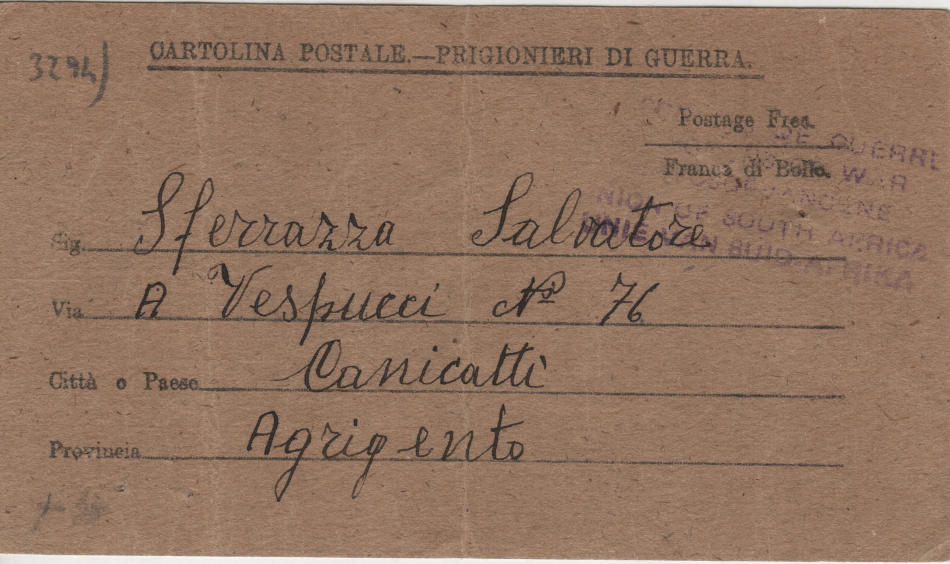 3294)
CARTOLINA POSTALE.—PRIGIONIERI DI GUERRA.
Postage Free.
Franco di Bollo.
DE GUERRE
WAR
UNION OF SOUTH AFRICA
UNIE VAN SUID-AFRIKA
Sig. Sferrazza Salvatore
Via A Vespucci No 76
Città o Paese Canicatti
Provincia Agrigento